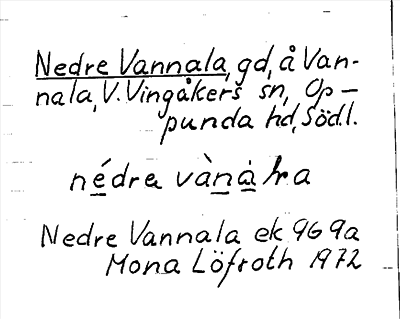 Nedre Vannala, gd, å Van-
nala, V. Vingåkers sn, Op-
punda hd, Södl.
nédre vànàla
Nedre Vannala ek 9G 9a
Mona Löfroth 1972